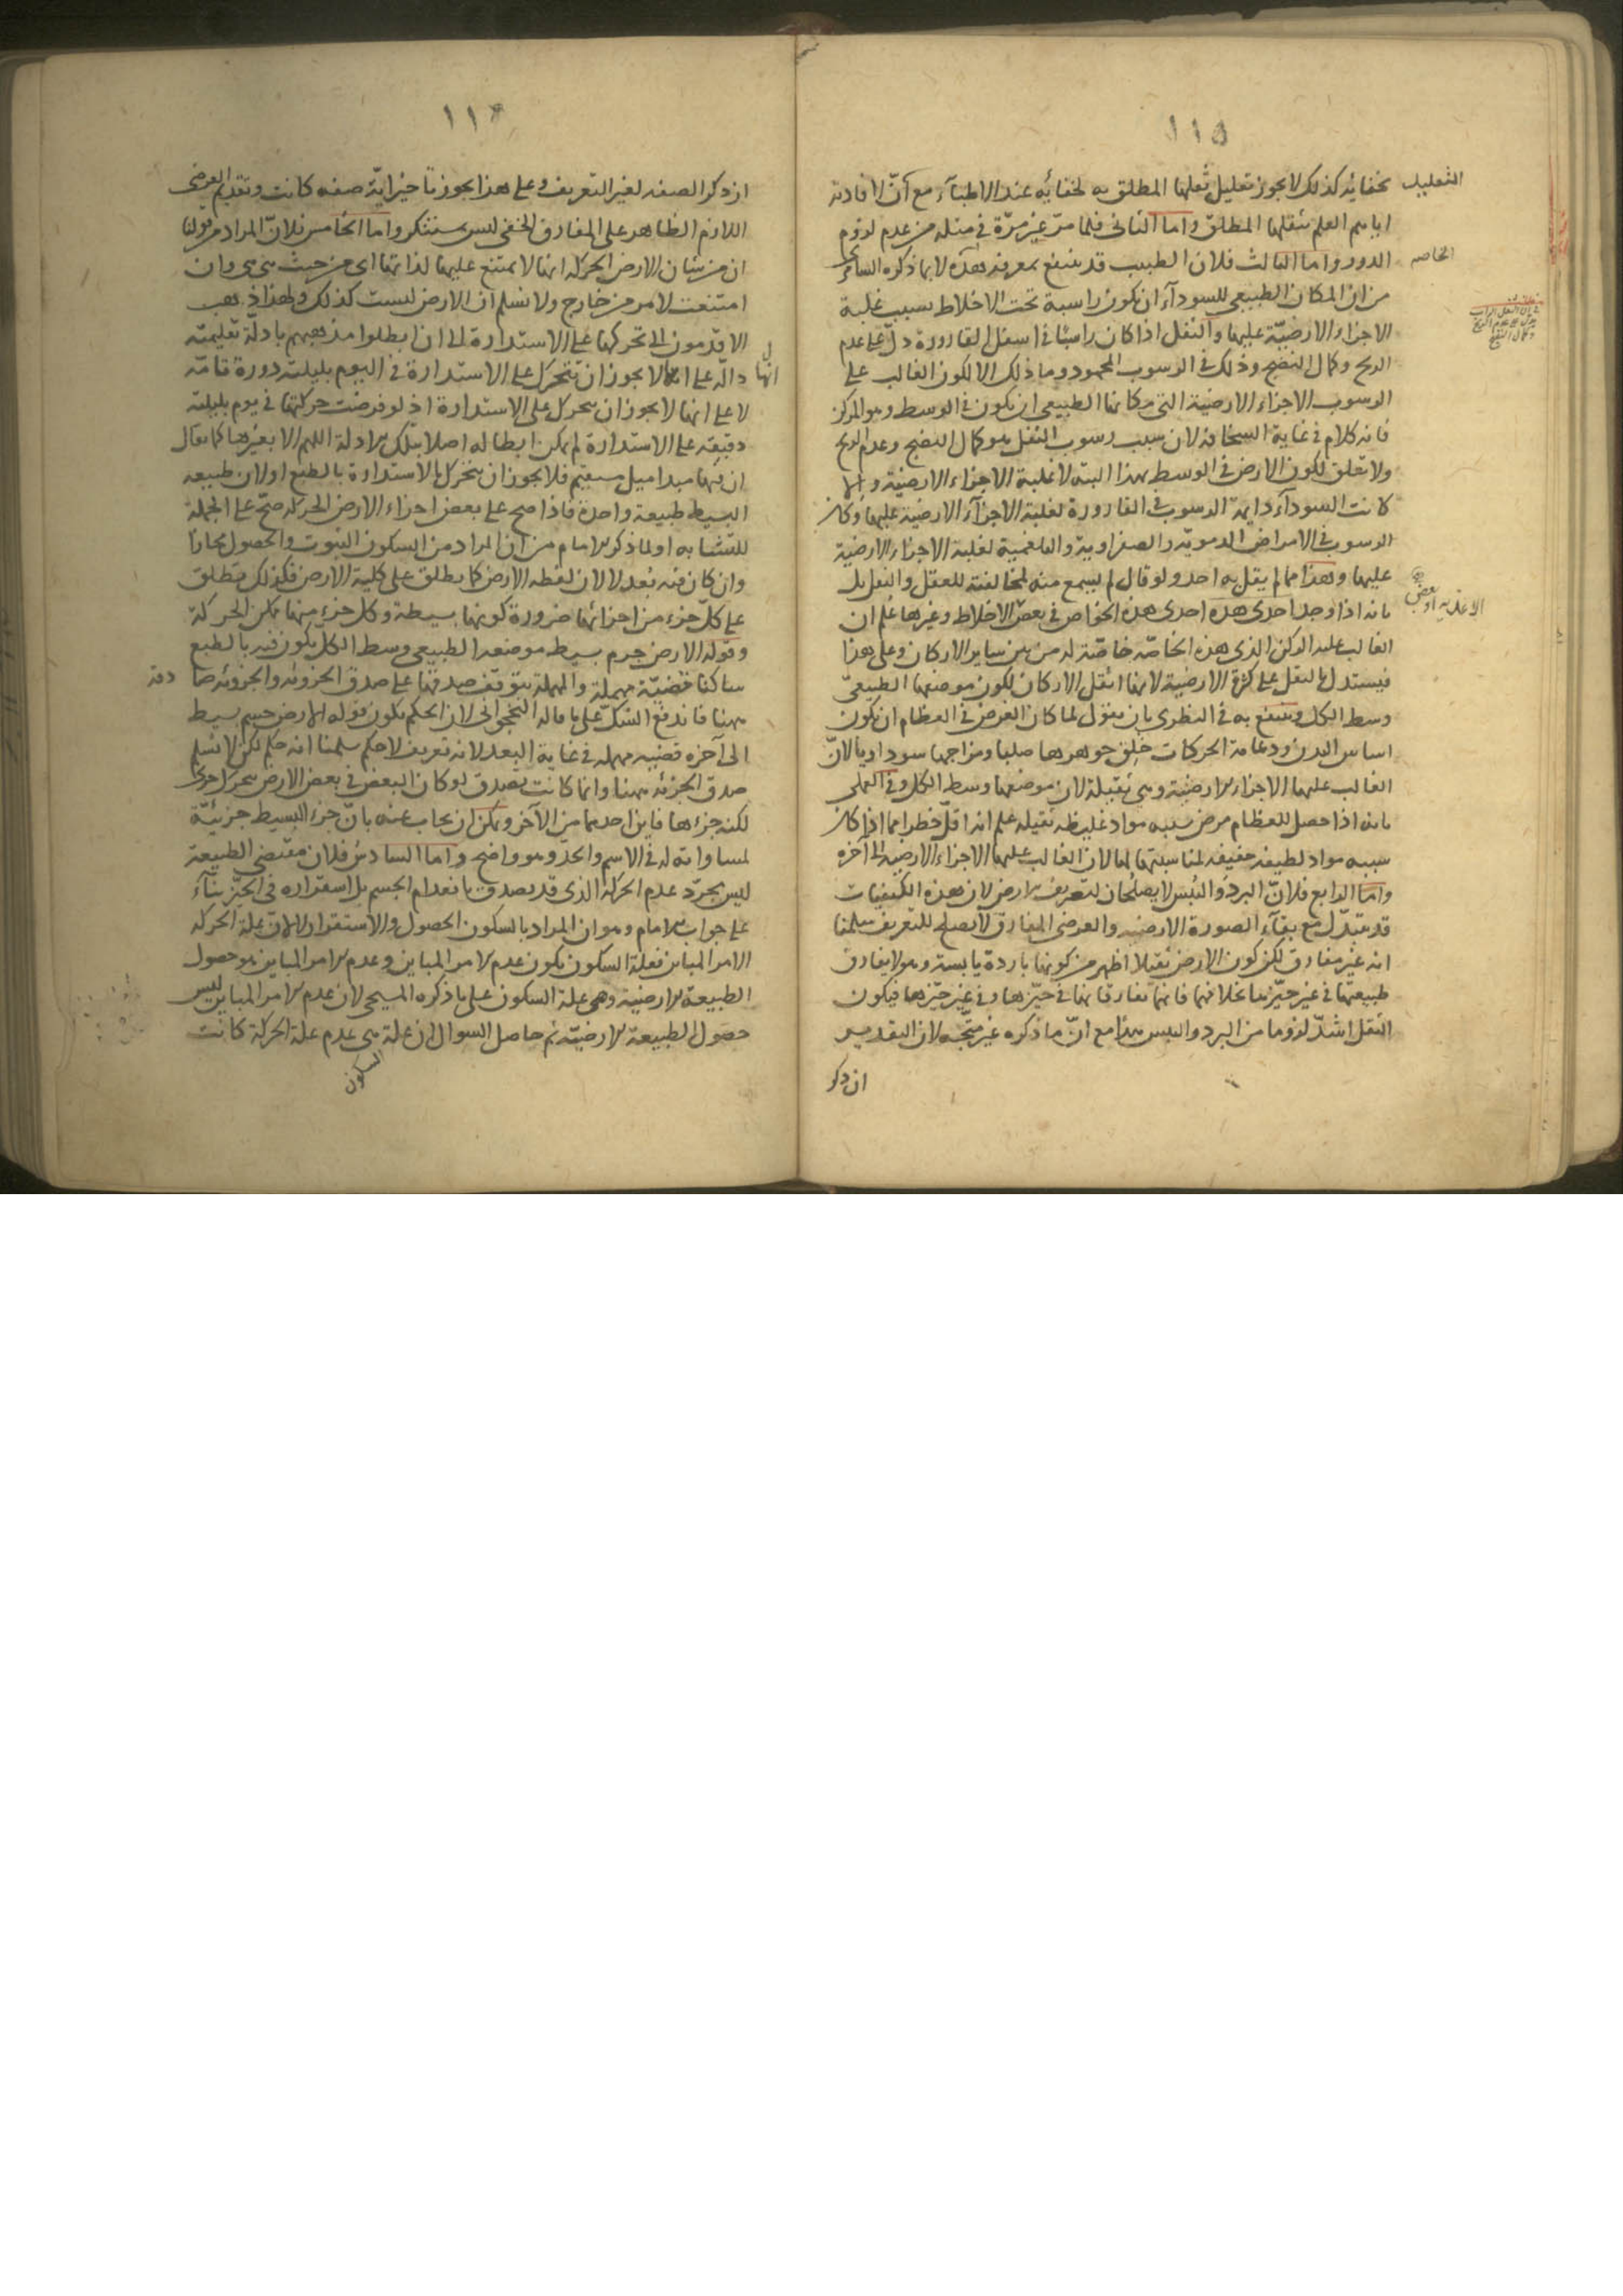 ١١٥
بخفائه كذلك لا يجوز تعليل ثقلها المطلق به لخفائه عند الاطباء مع أنّ لافادته
التعليل
اياهم العلم بثقلها المطلق واما الثانى فلما مرّ غير مرّة فى مثله من عدم لزوم
الدور واما الثالث فلان الطبيب قد ينتفع بمعرفة هذه لا بما ذكره السامرى
الخاصه
من ان المكان الطبيعى للسوداء ان يكون راسبة تحت الاخلاط بسبب غلبة
الاجزاء الارضيّة عليها والثفل اذا كان راسبًا فى اسفل القارورة دلّ على عدم
الريح وكمال النضج وذلك فى الرسوب المحمود وما ذلك الا لكون الغالب على
الرسوب الاجزاء الارضية التى مكانها الطبيعى ان يكون فى الوسط وهو المركز
فانه كلام فى غاية السخافة لان سبب رسوب الثفل هو كمال النضج وعدم الريح
ولا تعلق لكون الارض فى الوسط بهذا البتة لا غلبة الاجزاء الارضية والا
كانت السوداء دايمة الرسوب فى القارورة لغلبة الاجزاء الارضية عليها وكان
الرسوب فى الامراض الدموية والصفراوية والبلغمية لغلبة الاجزاء الارضية
عليها وهذا مما لم يقل به احد ولو قال لم يسمع منه لمخالفته للعقل والنقل بل
بانه اذا وجد احدى هذه احدى هذه الخواص فى بعض الاخلاط وغيرها علم ان
الاغذيه او بعض
الغالب عليه الركن الذى هذه الخاصّة خاصّة له من بين ساير الاركان وعلى هذا
فيستدل بالثقل على كثرة الارضية لانها اثقل الاركان لكون موضعها الطبيعىّ
وسط الكل وينتفع به فى النظرى بان يقول لما كان الغرض فى العظام ان تكون
اساس البدن ودعامة الحركات خلق جوهرها صلبا ومزاجها سوداويا لانّ
الغالب عليها الاجزاء الارضية وهى ثقيلة لان موضعها وسط الكل وفى العملى
بانه اذا حصل للعظام مرض سببه مواد غليظه ثقيله علم انه اقلّ خطرا مما اذا كان
سببه مواد لطيفه خفيفه لمناسبتها لها لان الغالب عليها الاجزاء الارضية الى آخره
واما الرابع فلانّ البرد واليبس لا يصلحان لتعريف الارض لان هذه الكيفيات
قد تتبدّل مع بقاء الصورة الارضيه والعرضى المفارق لا يصلح للتعريف سلمنا
انه غير مفارق لكن كون الارض ثقيلا اظهر من كونها باردة يابسة وهو لا يفارق
طبيعتها فى غير حيّزها بخلافهما فانهما تفارقانها فى حيّزها وفى غير حيّزها فيكون
الثقل اشدّ لزوما من البرد واليبس هذا مع انّ ما ذكره غير متّجه لان التقدير
ان ذكر
١١٦
ان ذكر الصفه لغير التعريف وعلى هذا يجوز تاخير ايّة صفه كانت وتقديم العرضى
اللازم الظاهر على المفارق الخفى ليس بمستنكر واما الخامس فلانّ المراد من قولنا
ان من شان الارض الحركه انها لا تمتنع عليها لذاتها اى من حيث هى هى وان
امتنعت لامر من خارج ولا نسلم ان الارض ليست كذلك ولهذا ذهب
الاقدمون الى تحركها على الاستدارة الى ان ابطلوا مذهبهم بادلّة تعليميّة
دالّة على انها لا يجوز ان تتحرك على الاستدارة فى اليوم بليلته دورة تامّة
انها
لا على انها لا يجوز ان تتحرك على الاستدارة اذ لو فرضت حركتها فى يوم بليلته
دقيقه على الاستدارة لم يمكن ابطاله اصلا بتلك الادلة اللهم الا بغيرها كما يقال
ان فيها مبدا ميل مستقيم فلا يجوز ان تتحرك بالاستدارة بالطبع او لان طبيعه
البسيط طبيعة واحدة فاذا صح على بعض اجزاء الارض الحركه صحّ على الجملة
للتشابه او لما ذكر الامام من ان المراد من السكون الثبوت والحصول مجازا
وان كان فيه بُعد لا لان لفظه الارض كما يطلق على كلية الارض فكذلك يطلق
على كلّ جزء من اجزائها ضرورة كونها بسيطة وكل جزء منها ممكن الحركة
وقوله الارض جرم بسيط موضعه الطبيعى وسط الكل يكون فيه بالطبع
ساكنا قضيّة مهملة والمهملة يتوقف صدقها على صدق الجزوئه والجزوئه صا
دقه
ههنا فاندفع الشكّ على ما قاله النخجوانى لان الحكم بكون قوله الارض جسم بسيط
الى آخره قضيه مهمله فى غاية البعد لانه تعريف لا حكم سلمنا انه حكم لكن لا نسلم
صدق الجزئه ههنا وانما كانت تصدق لو كان البعض فى بعض الارض يتحرك جزءا
لكنه جزءها فاين احدهما من الآخر ويمكن ان يجاب عنه بانّ جزء البسيط جزئيّة
لمساواته له فى الاسم والحدّ وهو واضح واما السادس فلان مقتضى الطبيعة
ليس مجرّد عدم الحركة الذى قد يصدق بانعدام الجسم بل استقراره فى الحيّز بناءً
على جواب الامام وهو ان المراد بالسكون الحصول والاستقرار لا لانّ علة الحركه
الامر المباين فعلة السكون يكون عدم الامر المباين وعدم الامر المباين هو حصول
الطبيعة الارضية وهى علة السكون على ما ذكره المسيحى لان عدم الامر المباين ليس
حصول الطبيعة الارضيّة ثم حاصل السوال ان علة هى عدم علة الحركة كانت
السكون